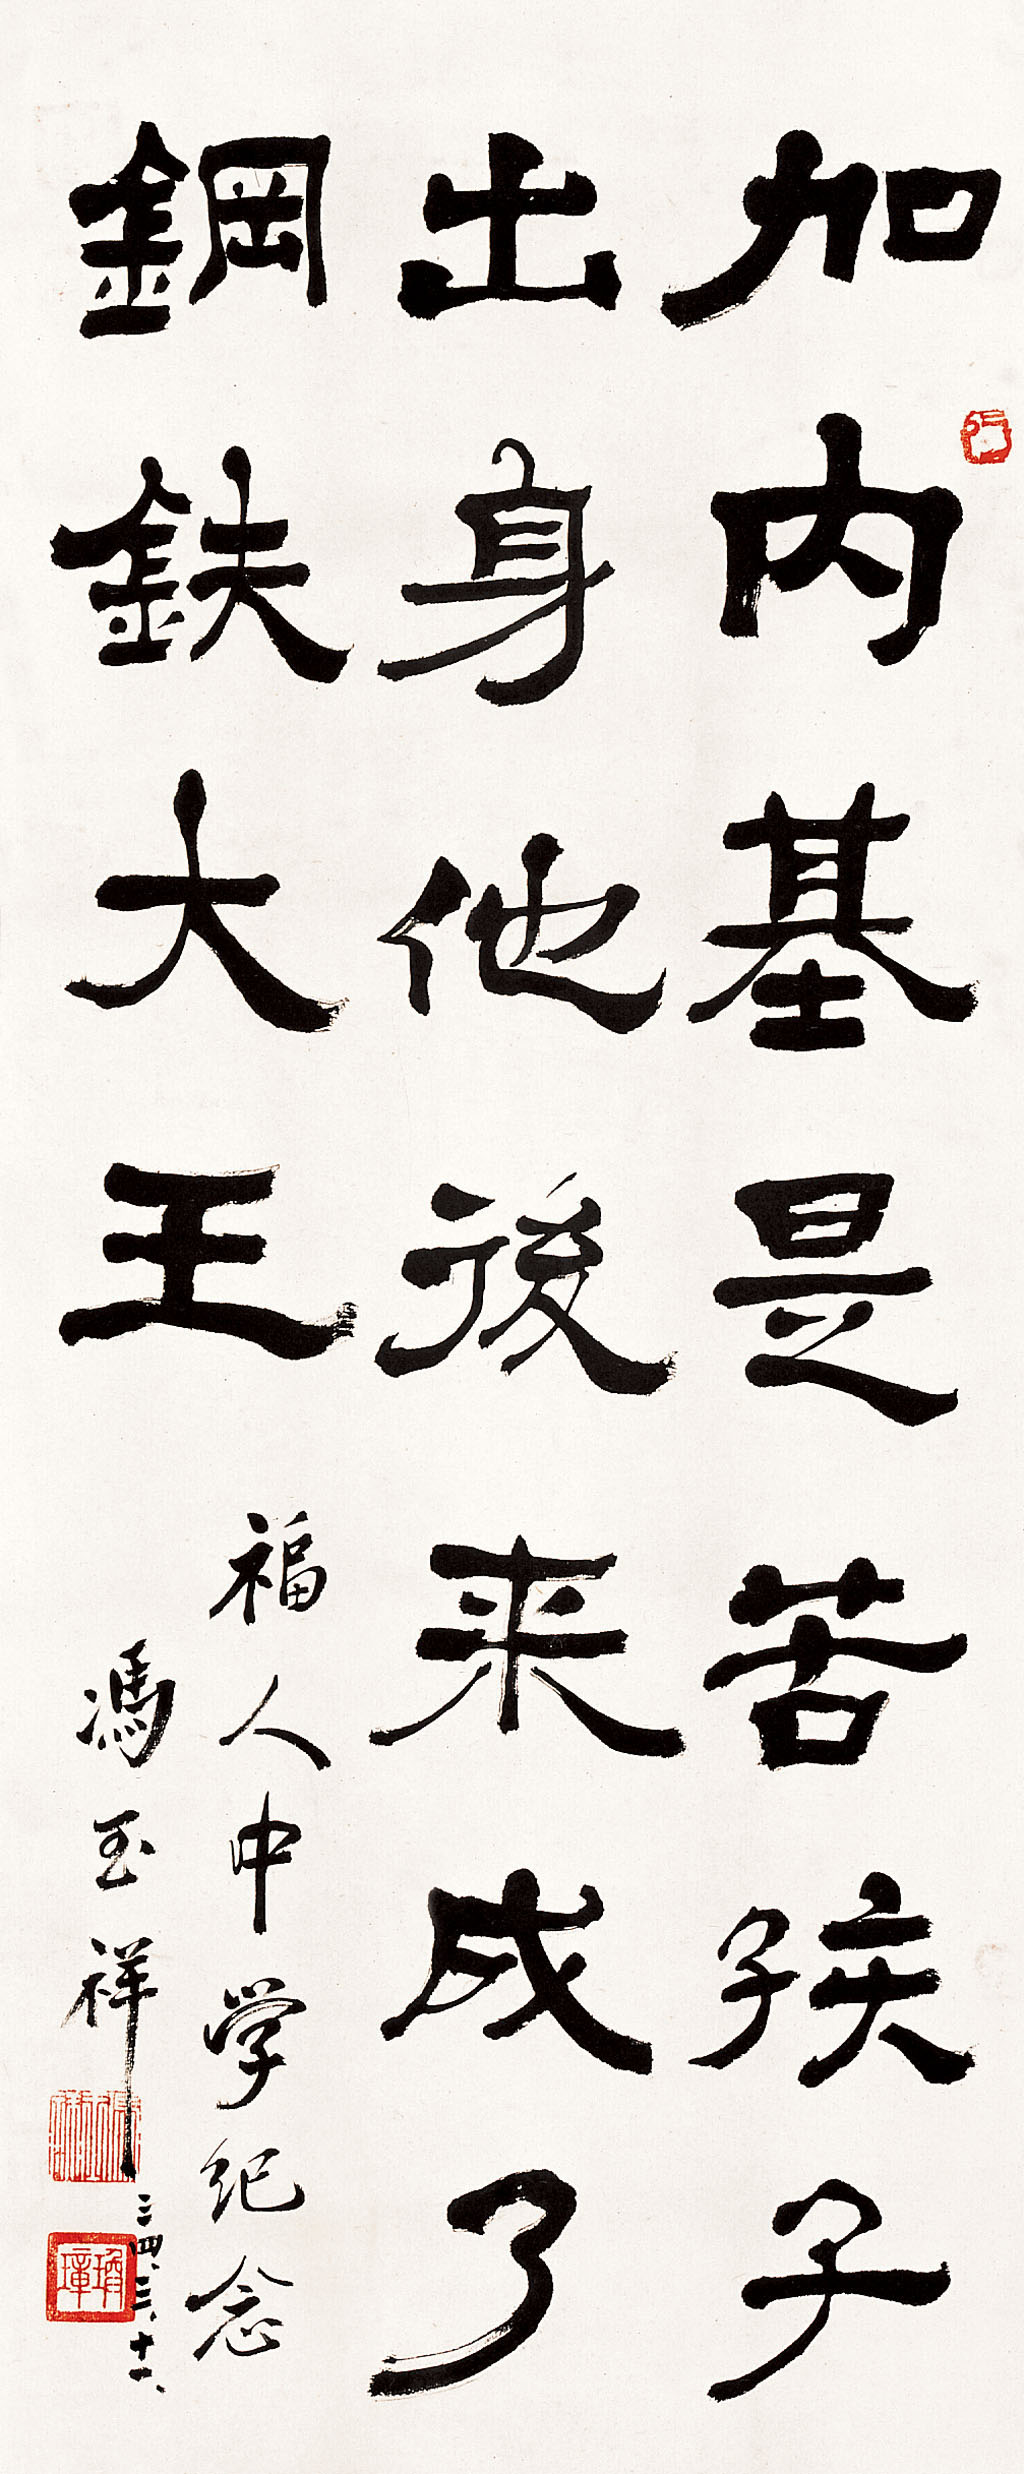 加内基是苦孩子
出身他後来成了
鋼鉄大王
福人中学纪念
馮玉祥
三四、三、十一、